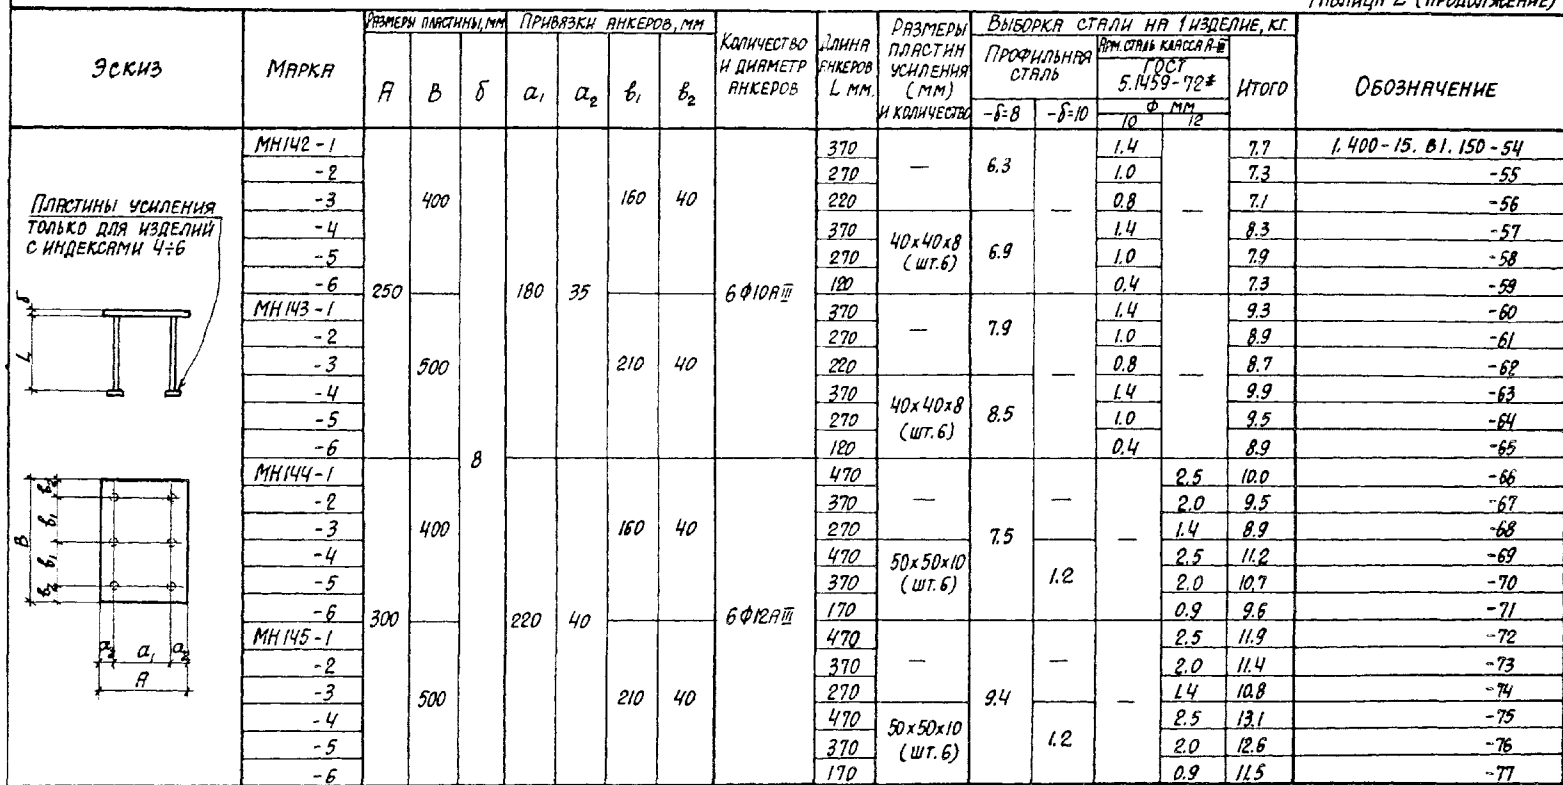 Таблица 2 (продолжение)
Эскиз
Марка
Размеры пластины, мм
А В δ
Привязки анкеров, мм
а₁ а₂ в₁ в₂
Количество и диаметр анкеров
Длина анкеров L мм.
Размеры пластин усиления (мм) и количество
Выборка стали на 1 изделие, кг.
Профильная сталь
-δ=8 -δ=10
Арм. сталь класса А-III
ГОСТ 5.1459-72*
Ф мм
10 12
Итого
Обозначение
Пластины усиления
только для изделий
с индексами 4÷6
δ
L
В
в₂
в₁
в₁
в₂
а₂ а₁ а₂
А
МН142-1 250 400 8 180 35 160 40 6Ф10АIII 370 — 6.3 — 1.4 — 7.7 1.400-15.В1.150-54
-2 270 1.0 7.3 -55
-3 220 0.8 7.1 -56
-4 370 40×40×8 (шт.6) 6.9 1.4 8.3 -57
-5 270 1.0 7.9 -58
-6 120 0.4 7.3 -59
МН143-1 500 210 40 370 — 7.9 — 1.4 — 9.3 -60
-2 270 1.0 8.9 -61
-3 220 0.8 8.7 -62
-4 370 40×40×8 (шт.6) 8.5 1.4 9.9 -63
-5 270 1.0 9.5 -64
-6 120 0.4 8.9 -65
МН144-1 300 400 220 40 160 40 6Ф12АIII 470 — 7.5 — — 2.5 10.0 -66
-2 370 2.0 9.5 -67
-3 270 1.4 8.9 -68
-4 470 50×50×10 (шт.6) 1.2 2.5 11.2 -69
-5 370 2.0 10,7 -70
-6 170 0.9 9.6 -71
МН145-1 500 210 40 470 — 9.4 — — 2.5 11.9 -72
-2 370 2.0 11.4 -73
-3 270 1.4 10.8 -74
-4 470 50×50×10 (шт.6) 1.2 2.5 13.1 -75
-5 370 2.0 12.6 -76
-6 170 0.9 11.5 -77